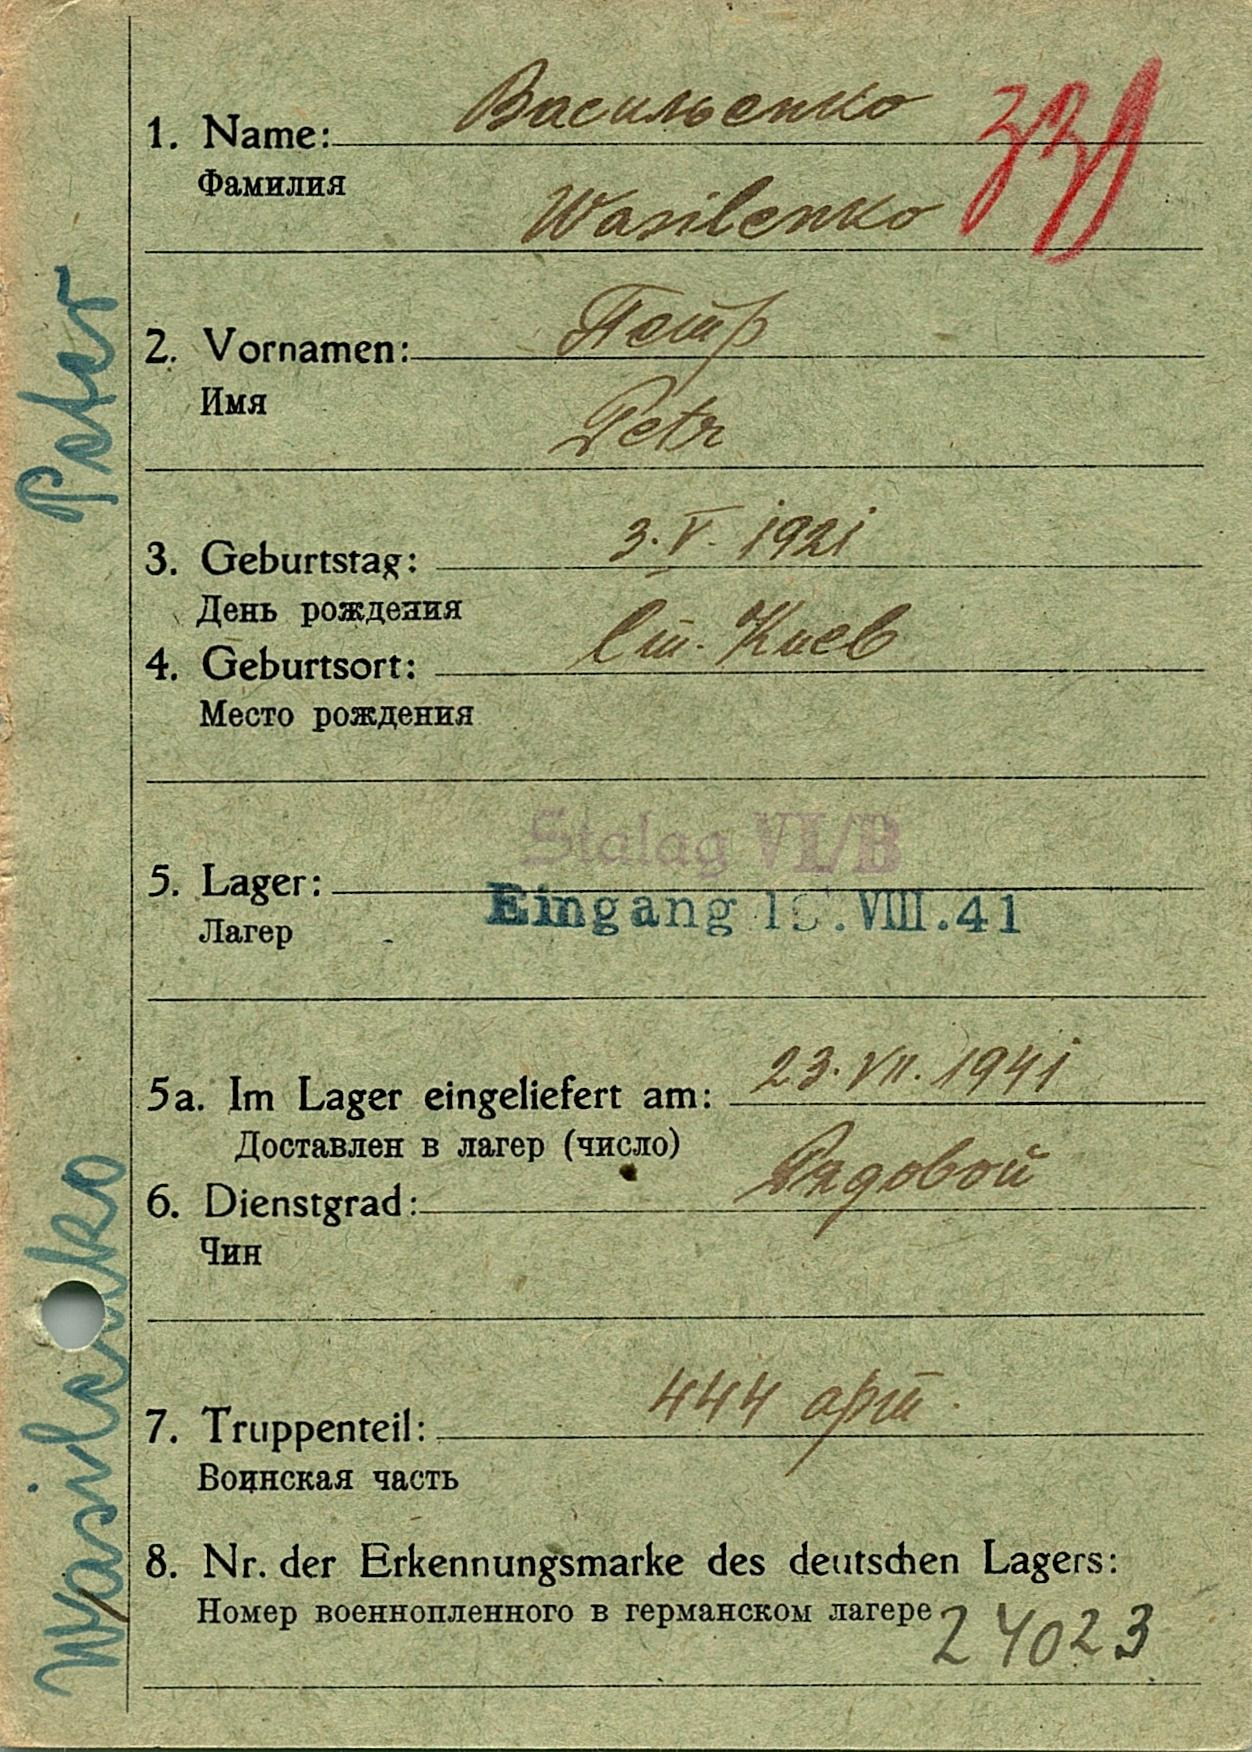 Васильенко
1. Name:
Фамилия
Wasilenko
Петр
2. Vornamen:
Имя
Petr
3. Geburtstag: 3. V. 1921
День рождения
4. Geburtsort: Ст. Киев
Место рождения
Stalag VI/B
5. Lager:
Eingang .VIII.41
Лагер
5a. Im Lager eingeliefert am: 23. VII. 1941
Доставлен в лагер (число)
6. Dienstgrad: Рядовой
Чин
7. Truppenteil: 444 арт.
Воинская часть
8. Nr. der Erkennungsmarke des deutschen Lagers:
Номер военнопленного в германском лагере 24023
Wasilenko Peter